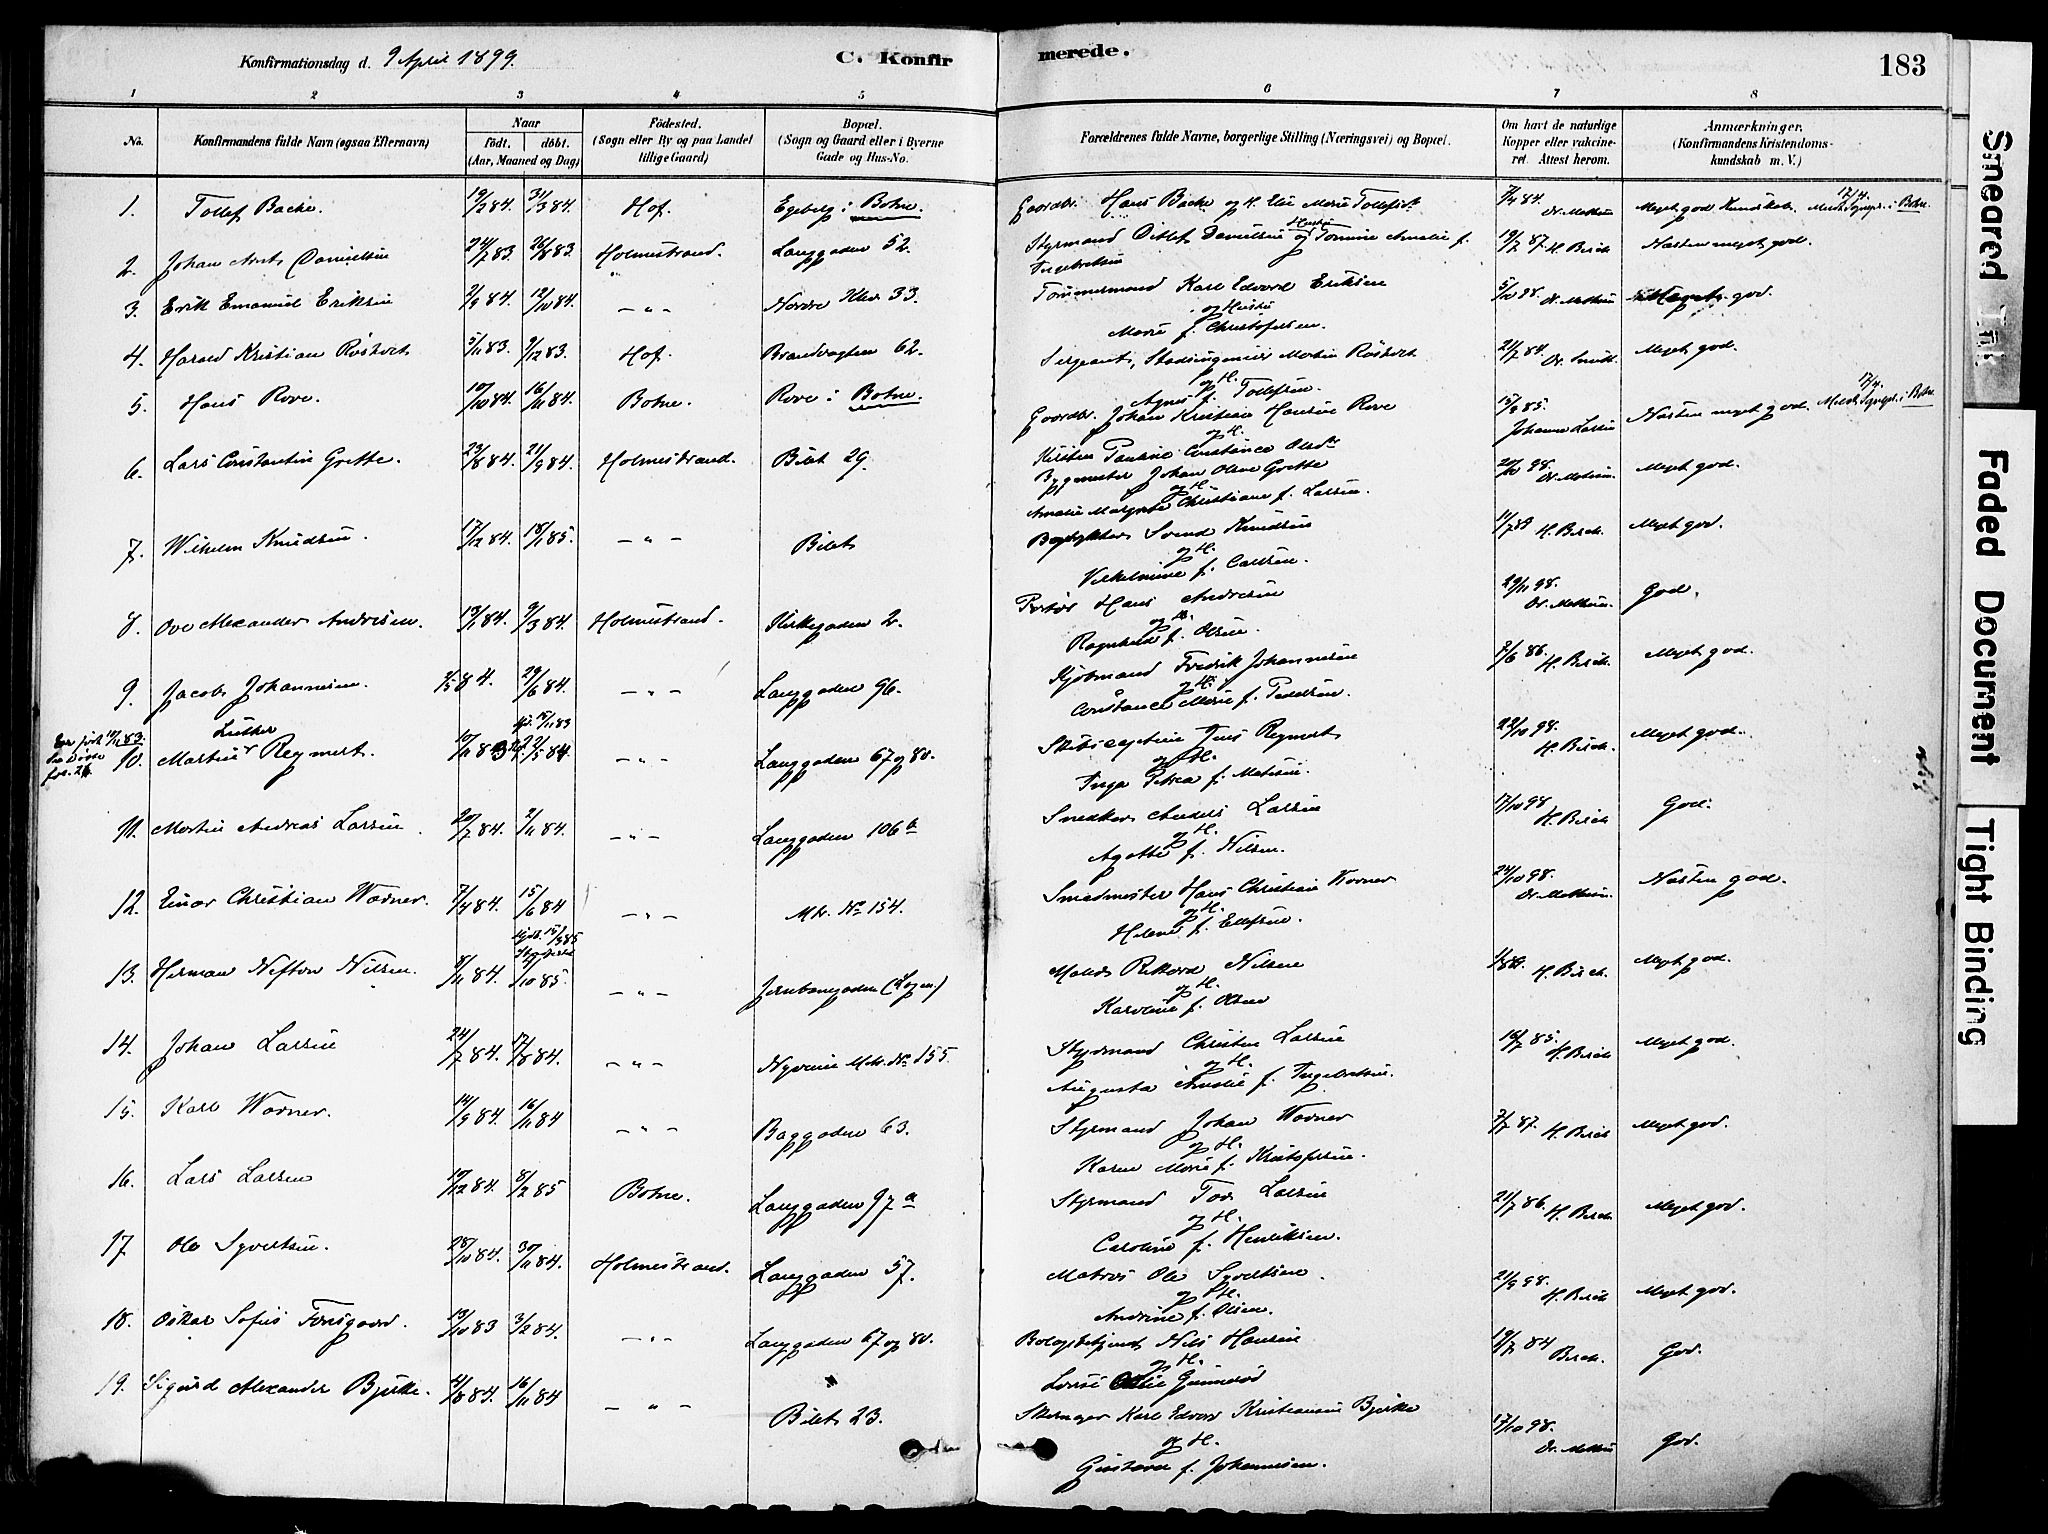 Konfirmationsdag d. 9 April 1899.
C. Konfir
merede.
183
1 2 3 4 5 6 7 8
No.
Konfirmandens fulde Navn (ogsaa Efternavn)
Naar
født. døbt.
(Aar, Maaned og Dag)
Fødested.
(Sogn eller By og paa Landet
tillige Gaard)
Bopæl.
(Sogn og Gaard eller i Byerne
Gade og Hus-No.
Forældrenes fulde Navne, borgerlige Stilling (Næringsvei) og Bopæl.
Om havt de naturlige
Kopper eller vakcine-
ret. Attest herom.
Anmærkninger.
(Konfirmandens Kristendoms-
kundskab m. V.)
1. Tollef Backe. 19/2 84. 31/3 84. Hof. Egeberg i Botne. Gaardbr. Hans Backe og H. Else Marie Tollefsdtr 84. Dr. Mathesen Meget god Kundskab. 17/4. Meldt Sognepr. i Botne.
2. Johan Arnt Danielsen 24/7 83. 26/8 83. Holmestrand. Langgaden 52. Styrmand Ditlef Danielsen og Hustru Tomine Amalie f.
Ingebretsen 19/7 87. H. Birch. Næsten meget god.
3. Erik Emanuel Eriksen 2/9 84. 12/10 84. - " - Nordre Klev 33. Tømmermand Karl Edvard Eriksen
og Hustru
Marie f. Christofersen. 5/10 98. Dr. Mathesen Meget god.
4. Harald Kristian Røstvet 5/11 83. 9/12 83. Hof. Brandvagten 62. Sergeant, Stadsingeniør Martin Røstvet
og H.
Agnes f. Tollefsen. 21/7 84. Dr. Smidt. Meget god.
5. Hans Rove. 10/10 84. 16/11 84. Botne. Rove i Botne. Gaardbr. Johan Kristian Hansen Rove
og H.
Kirsten Pauline Constance Olsdtr 15/9 85. Johanne Larsen Næsten meget god. 17/4. Meldt Sognepr. i Botne
6. Lars Constantin Grette. 23/8 84. 21/9 84. Holmestrand. Bilet 29. Bygmester Johan Olsen Grette
og H.
Amalie Margrete Christiane f. Larsen. 20/10 98. Dr. Mathesen. Meget god.
7. Wilhelm Knudsen. 17/12 84. 18/1 85. - " - Bilet Svend Knudsen
og H.
Vilhelmine f. Carlsen. H. Birch. Meget god.
8. Ove Alexander Andresen. 19/1 84. 9/3 84. Holmestrand. Kirkegaden 2. Hans Andresen
og H.
Ragnhild f. Olsen. 29/11 98. Dr. Mathesen. God.
9. Jacob Johannesen. 84. 29/6 84. - " - Langgaden 96. Kjøbmand Fredrik Johannesen
og H.
Constance Marie f. Pedersen. 7/6 86. H. Birch. Meget god.
Er født 10/11 83.
10. Martin Luther Reymert. - " - Langgaden 67 og 80. Skibscaptein Jens Reymert
og H.
Inga Petrea f. Mathisen. 22/10 98. H. Birch. Meget god.
11. Martin Andreas Larsen. 20/7 84. 2/11 84. - " - Langgaden 106 b Snedker Anders Larsen
og H.
Agathe f. Nilsen. 17/10 98. H. Birch God.
12. Einar Christian Warner. 7/4 84. 15/6 84 - " - Mtr. No 154. Smedmester Hans Christian Warner
og H.
Helene f. Ellefsen. 24/10 98. Dr. Mathesen. Næsten god.
13. Herman Neften Nilsen. 8/11 84. 10 85. - " - Jernbanegaden (Løkjen) Matros Rikard Nilsen
og H.
Karoline f. Olsen H. Birch. Meget god.
14. Johan Larsen 24/7 84. 17/8 84. - " - Nyveien Mtr. No 155. Styrmand Christen Larsen
og H.
Augusta Amalie f. Ingebretsen. 16/7 85. H. Birch Meget god.
15. Karl Warner. 14/9 84. 16/11 84 - " - Baggaden 63. Styrmand Johan Warner
og H.
Karen Marie f. Kristofersen. 7/7 87. H. Birch Meget god.
16. Lars Larsen 10/12 84. 8/2 85 Botne. Langgaden 97 a Styrmand Tor Larsen
og H.
Caroline f. Henriksen. 21/7 86. H. Birch. Meget god.
17. Ole Syvertsen. 28/10 84. 30/11 84. Holmestrand. Langgaden 57. Matros Ole Syvertsen.
og H.
Andrine f. Olsen. 21/9 98. H. Birch Meget god.
18. Oskar Sofus Forsgaard. 13/10 83 3/2 84. - " - Langgaden 67 og 80. Bologbetjent Nils Hansen
og H.
Lovise 19/7 84 Birch. God.
19. Sigurd Alexander Bjerke. 84. 16/11 84 - " - Bilet 23. Karl Edvard Kristiansen Bjerke
og H.
Gustava f. Johannesen. 17/10 98. Dr. Mathesen God.
Smeared Ink
Faded Document
Tight Binding